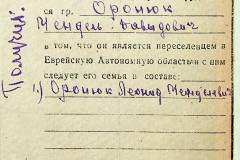 Получил:
ся гр. Оронюк
Мендель Давидович
в том, что он является переселенцем в
Еврейскую Автономную область с ним
следует его семья в составе:
1) Оронюк Леонид Менделевич